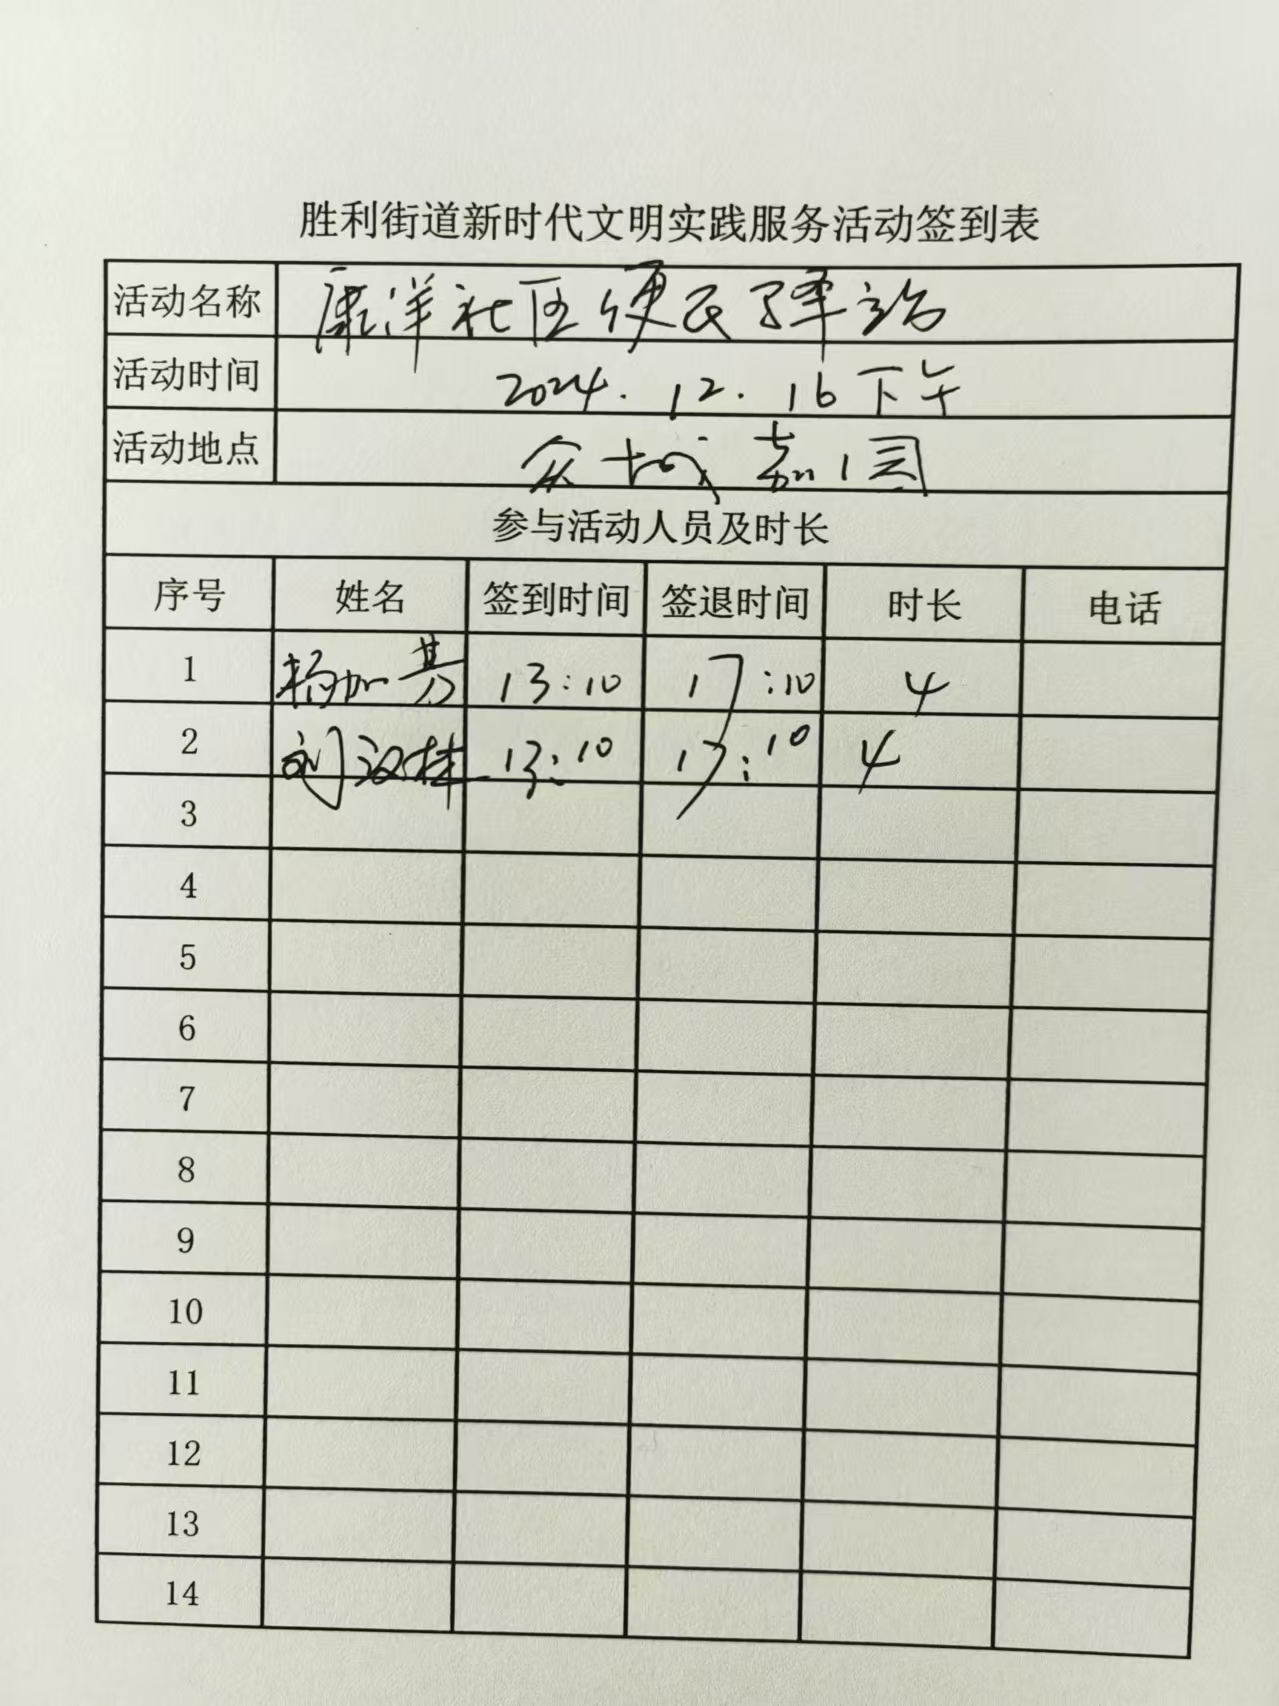 胜利街道新时代文明实践服务活动签到表
活动名称 康洋社区便民驿站
活动时间 2024.12.16下午
活动地点 众城嘉园
参与活动人员及时长
序号 姓名 签到时间 签退时间 时长 电话
1 杨加芬 13:10 17:10 4
2 刘汉林 13:10 17:10 4
3
4
5
6
7
8
9
10
11
12
13
14